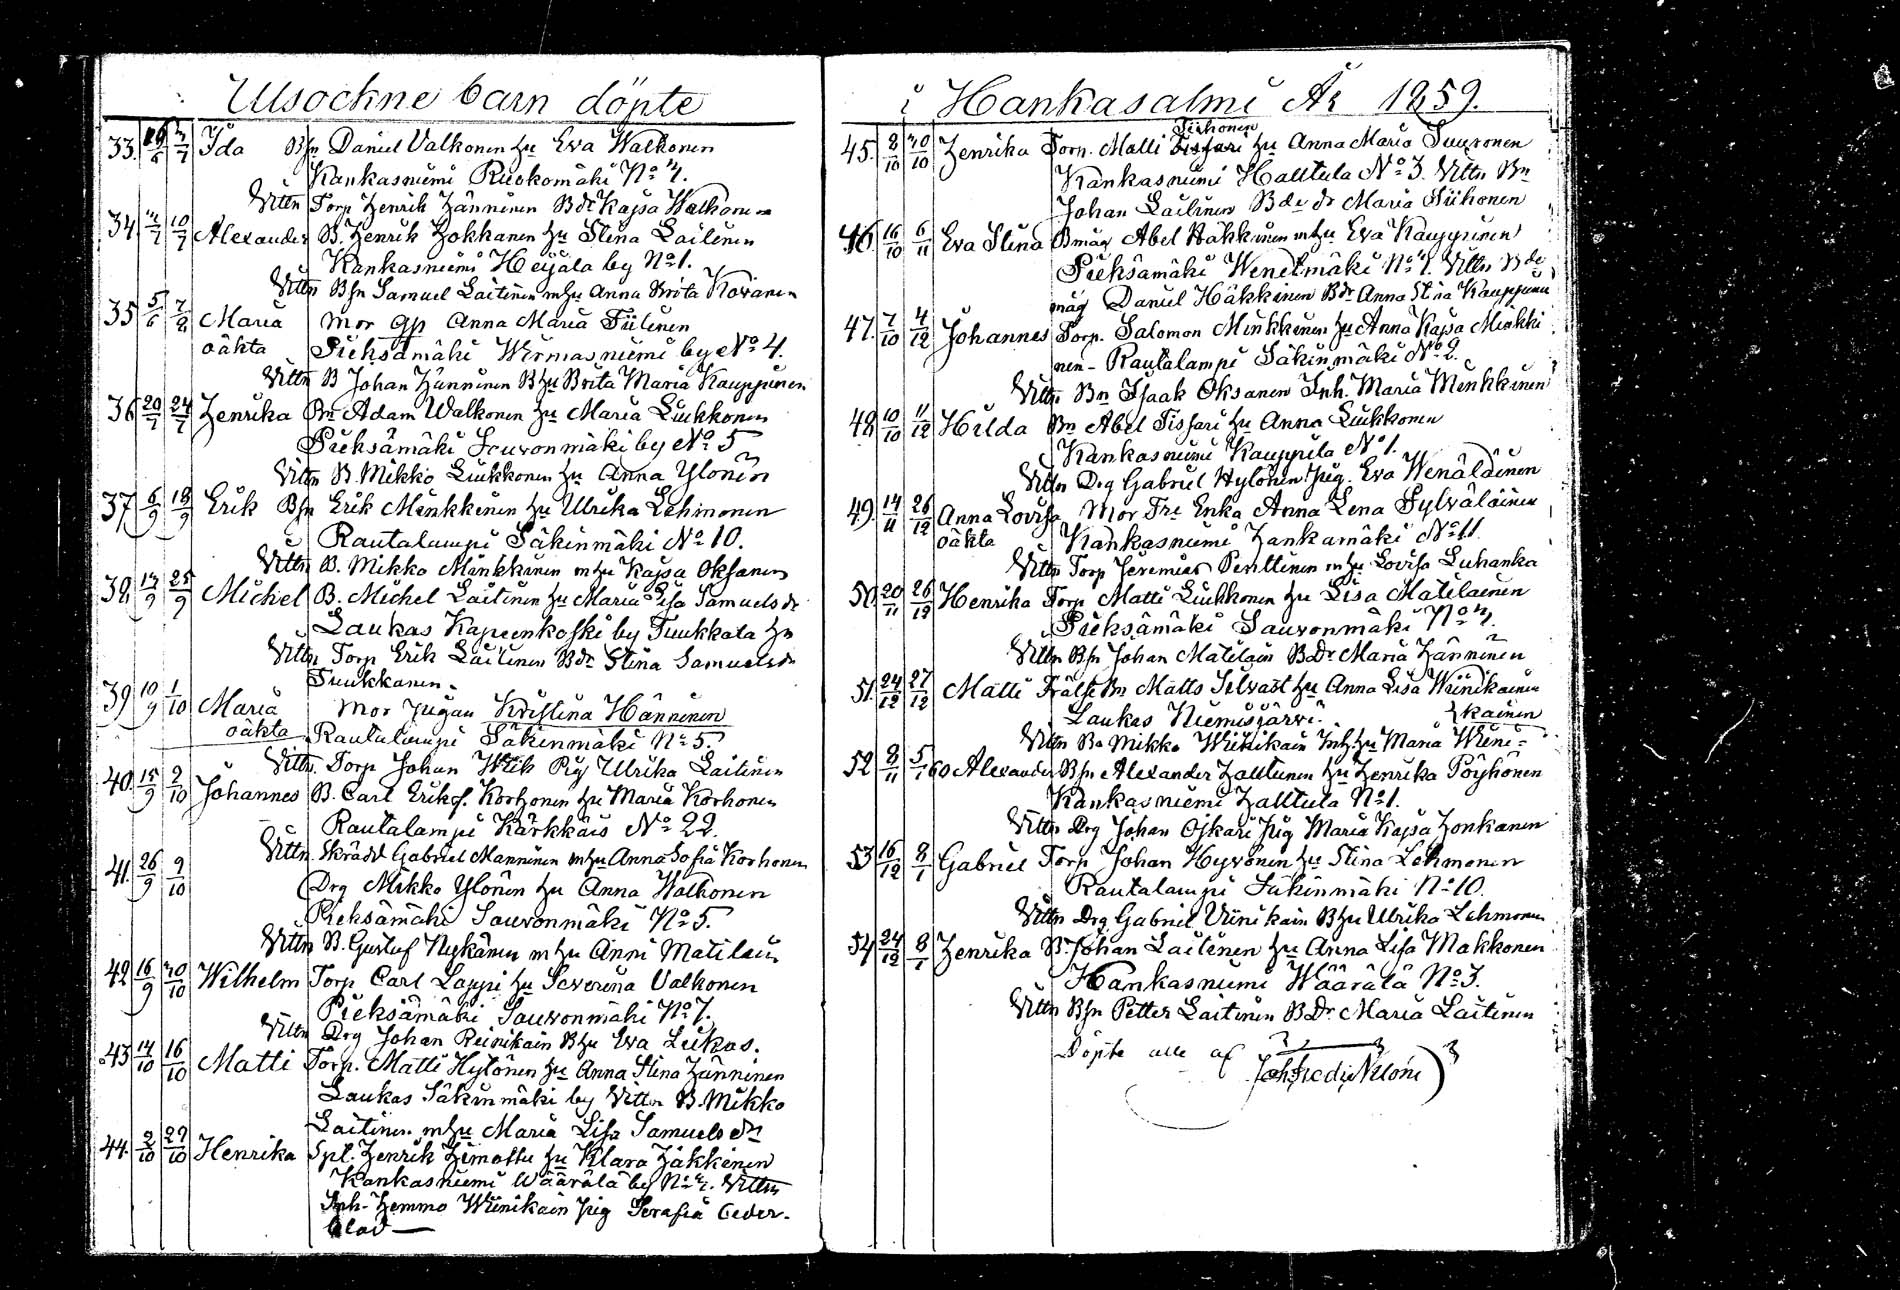 Utsockne barn döpte
33. 16/6 3/7 Ida Bsn Daniel Valkonen hu Eva Walkonen
Kankasniemi Ruokomäki No 4.
Vittn Torp Henrik Hänninen Bdr Kajsa Walkonen
34 4/7 10/7 Alexander B. Henrik Hokkanen hu Stina Laitinen
Kankasniemi Heijala by No 1.
Vittn Bsn Samuel Laitinen m hu Anna Brita Kovanen
35 5/6 7/8 Maria Mor gp Anna Maria Tiilinen
oäkta Pieksämäki Wirmasniemi by No 4.
Vittn B Johan Hänninen B hu Brita Maria Kauppinen
36 20/7 24/7 Henrika Bn Adam Walkonen hu Maria Liukkonen
Pieksämäki Souvonmäki by No 5
Vittn B. Mikko Liukkonen hu Anna Ylönen
37 6/9 18/9 Erik Bsn Erik Minkkinen hu Ulrika Lehmonen
Rautalampi Säkinmäki No 10.
Vittn B. Mikko Minkkinen m hu Kajsa Oksanen
38 14/9 25/9 Michel B. Michel Laitinen hu Maria Lisa Samuelsdr
Laukas Kapeenkoski by Tuukkala
Vittn Torp Erik Laitinen Bdr Stina Samuelsdr
Tuukkanen.
39 10/9 1/10 Maria Mor Pigan Kristina Hänninen
oäkta Rautalampi Säkinmäki No 5.
Vittn. Torp Johan Wilk Pig Ulrika Laitinen
40. 15/9 2/10 Johannes B. Carl Eriks. Korhonen hu Maria Korhonen
Rautalampi Kärkkäis No 22.
Vittn Skrädd Gabriel Manninen m hu Anna Sofia Korhonen
41. 26/9 9/10 Drg Mikko Ylönen hu Anna Walkonen
Pieksämäki Souvonmäki No 5.
Vittn B. Gustaf Nykänen m hu Anni Matilain
42 16/9 30/10 Wilhelm Torp Carl Lappi hu Severina Valkonen
Pieksämäki Souvonmäki No 7.
Vittn Drg Johan Reinikain B hu Eva Liikas.
43 14/10 16/10 Matti Torp. Matti Hylönen hu Anna Stina Hänninen
Laukas Säkinmäki by Vittn B. Mikko
Laitinen m hu Maria Lisa Samuelsdr
44. 2/10 29/10 Henrika Spl. Henrik Himottu hu Klara Häkkinen
Kankasniemi Wäärälä by No 4. Vittn
Inh. Hemmo Wiinikain Pig Serafia Ceder-
blad
i Hankasalmi År 1859.
Tiihonen
45. 8/10 30/10 Henrika Torp. Matti Tissari hu Anna Maria Suuronen
Kankasniemi Halttula No 3. Vittn Bn
Johan Laitinen Bde dr Maria Tiihonen
46. 16/10 6/11 Eva Stina Bmåg Abel Häkkinen m hu Eva Kauppinen
Pieksämäki Wenetmäki No 4. Vittn Bde
måg Daniel Häkkinen Bdr Anna Stina Kauppinen
47. 7/10 4/12 Johannes Torp. Salomon Minkkinen hu Anna Kajsa Minkki
nen - Rautalampi Säkinmäki No 2
Vittn Bn Isaak Oksanen Inh. Maria Minkkinen
48 10/10 11/12 Hilda Bn Abel Tissari hu Anna Liukkonen
Kankasniemi Kauppila No 1.
Vittn Drg Gabriel Hylönen Pig. Eva Wenäläinen
49. 14/11 26/12 Anna Lovisa Mor Fre Enka Anna Lena Sylväläinen
oäkta Kankasniemi Hankamäki No 11.
Vittn Torp Jeremias Penttinen m hu Lovisa Luhanka
50. 20/11 26/12 Henrika Torp Matti Liukkonen hu Lisa Matilainen
Pieksämäki Souvonmäki No 4.
Vittn Bsn Johan Matilain Bdr Maria Hänninen
51. 24/12 27/12 Matti Frälse Bn Matts Silvast hu Anna Lisa Wiinikainen
Laukas Niemisjärvi.
Vittn Bn Mikko Wiinikain Inh. hu Maria Wiini=
kainen
52 8/11 5/1 60 Alexander Bsn Alexander Halttunen hu Henrika Pöyhönen
Kankasniemi Halttula No 1.
Vittn Drg Johan Ojkari Pig Maria Kajsa Honkanen
53 16/12 8/1 Gabriel Torp Johan Hyvönen hu Stina Lehmonen
Rautalampi Säkinmäki No 10.
Vittn Drg Gabriel Viinikain B hu Ulrika Lehmonen
54 24/12 8/1 Henrika B. Johan Laitinen hu Anna Lisa Makkonen
Kankasniemi Wäärälä No 3.
Vittn Bsn Petter Laitinen Bdr Maria Laitinen
Döpte alle af